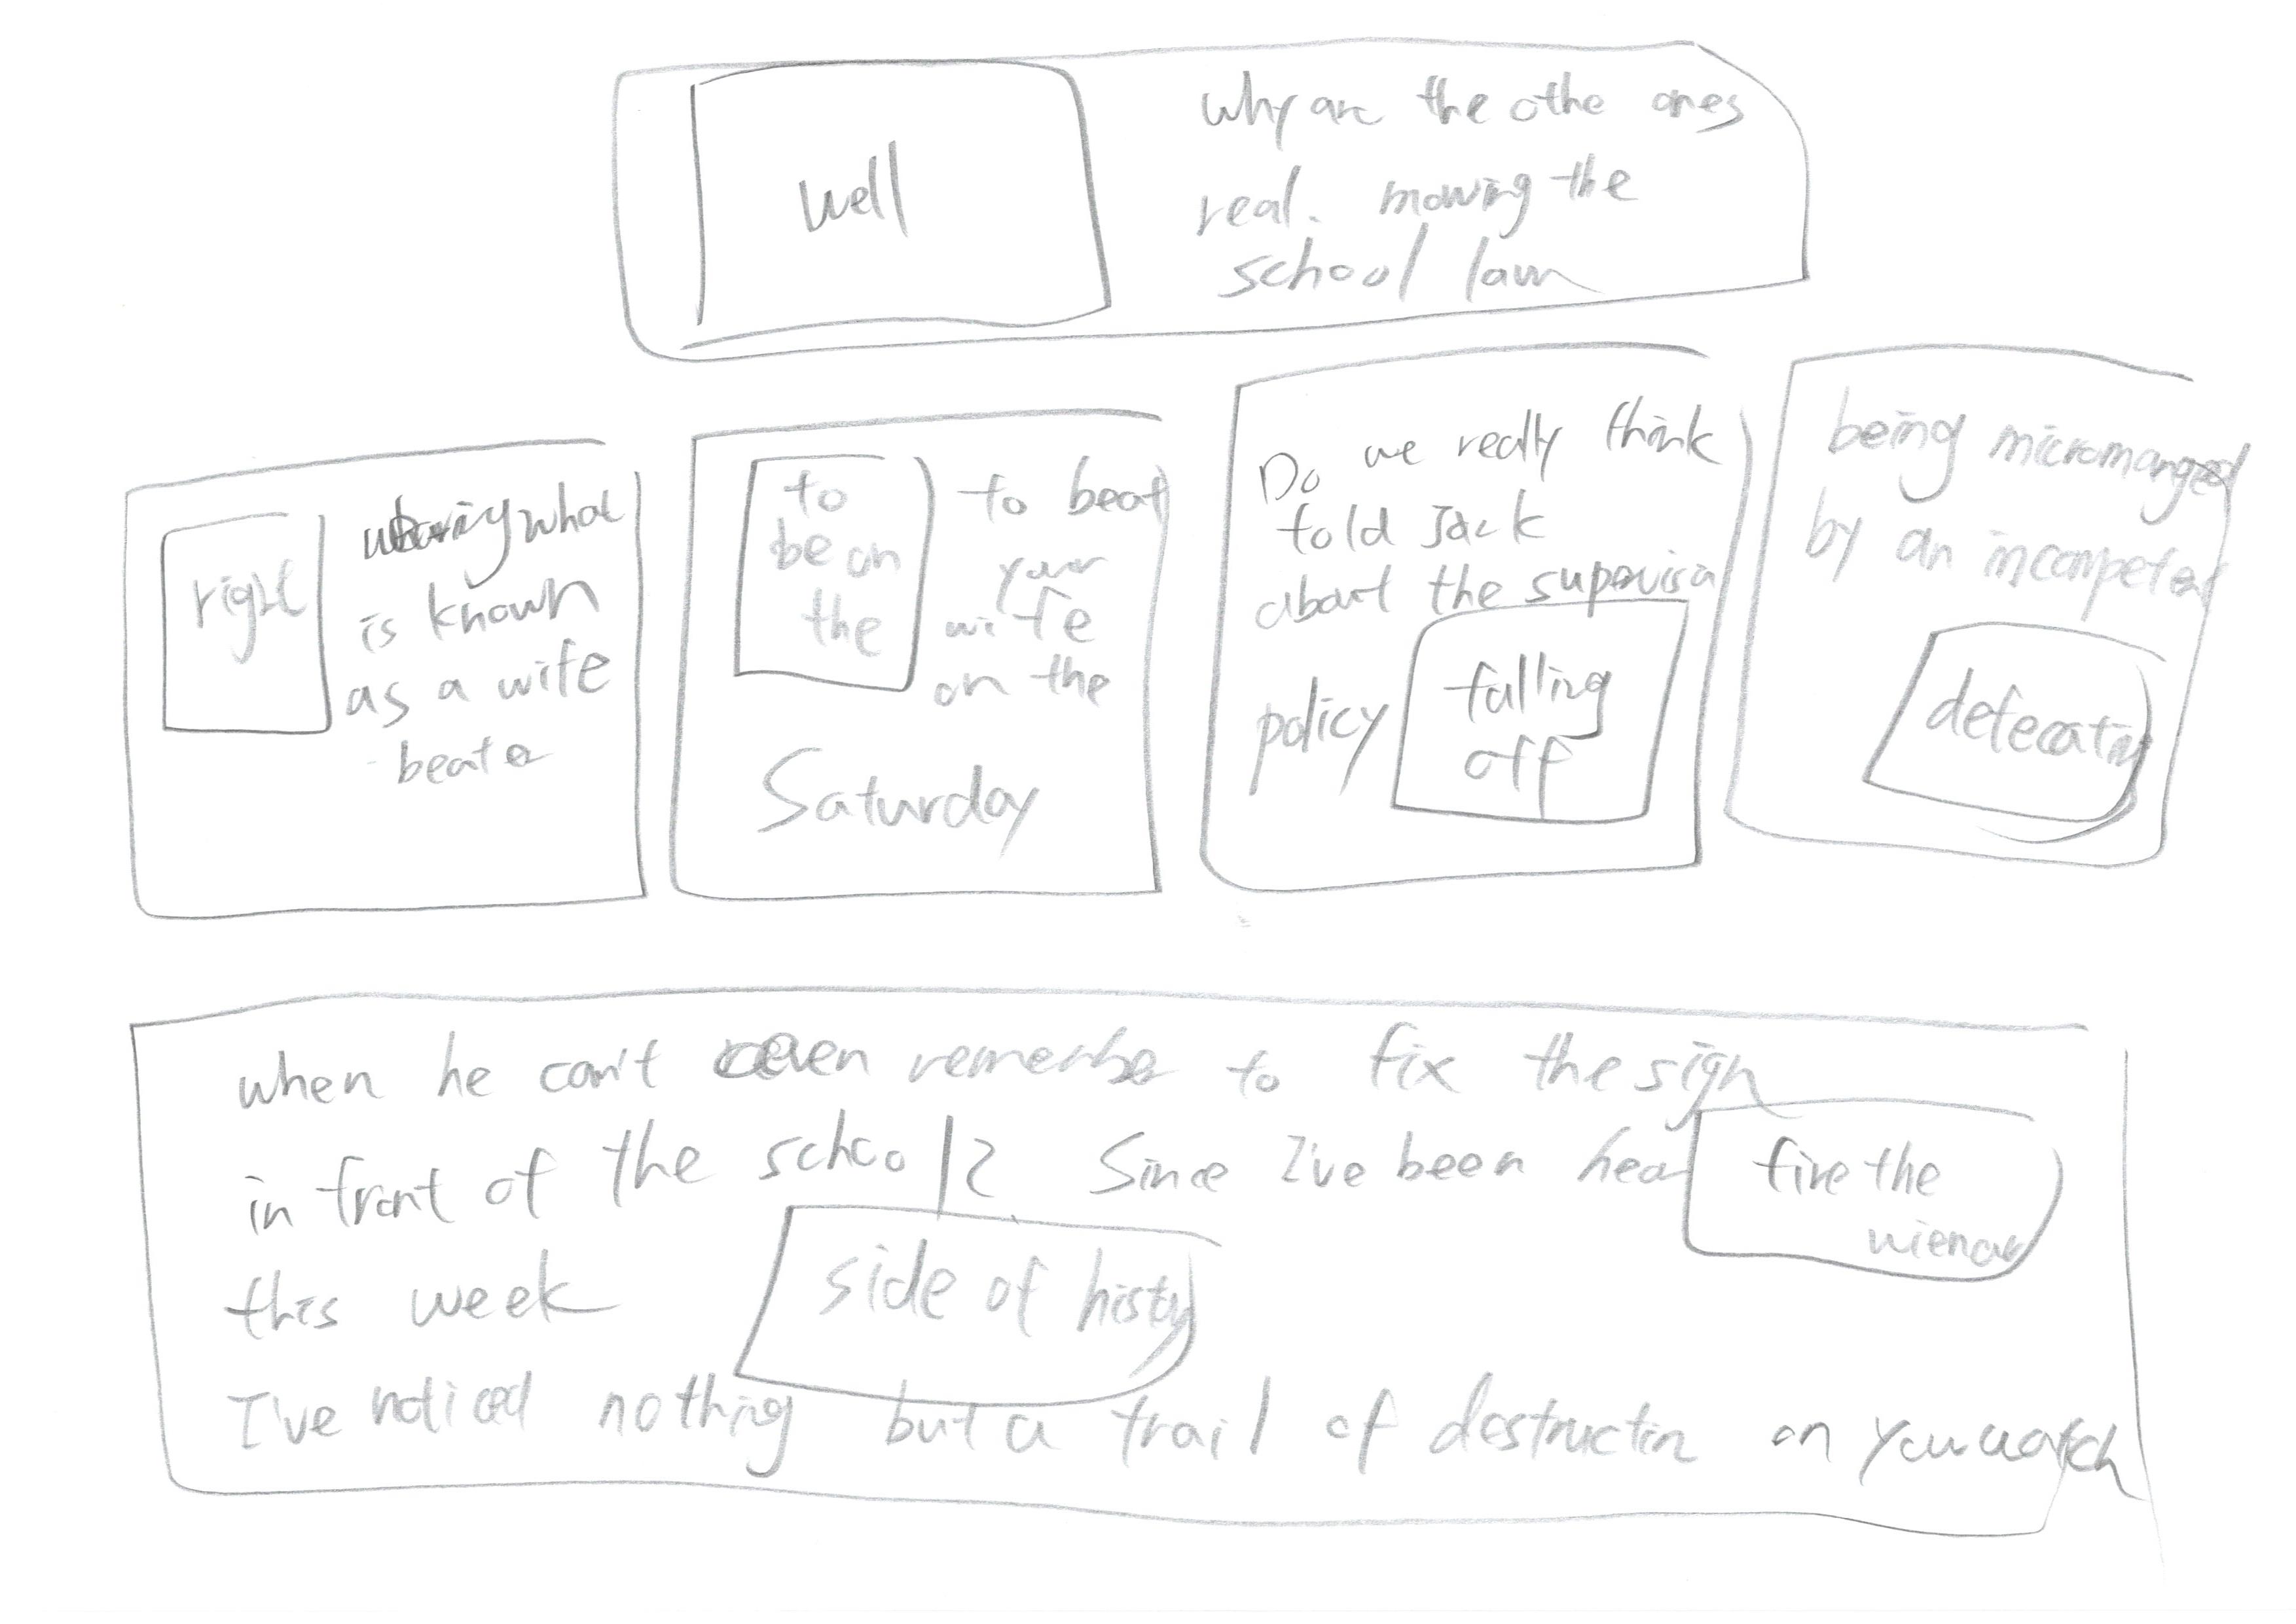 well
why are the othe ones
real. mowing the
school lawn
right
what
is known
as a wife
beater
to
be on
the
to beat
your
wife
on the
Saturday
Do we really think
told Jack
about the supervisor
policy
falling
off
being micromanged
by an incompetent
defecating
when he can't even remember to fix the sign
in front of the school? Since I've been hear
fire the
this week
side of history
I've noticed nothing but a trail of destruction on your watch